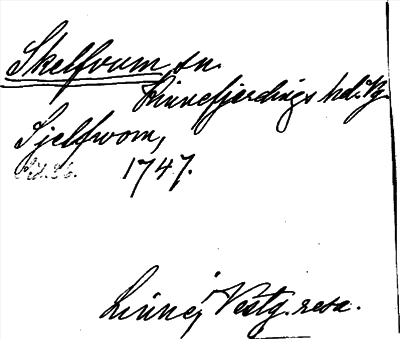 Skelfvum sn.
Kinnefjerdings hd. Vg.
Sjelfwom,
Sid. 26. 1747.
Linné, Vestg. resa.